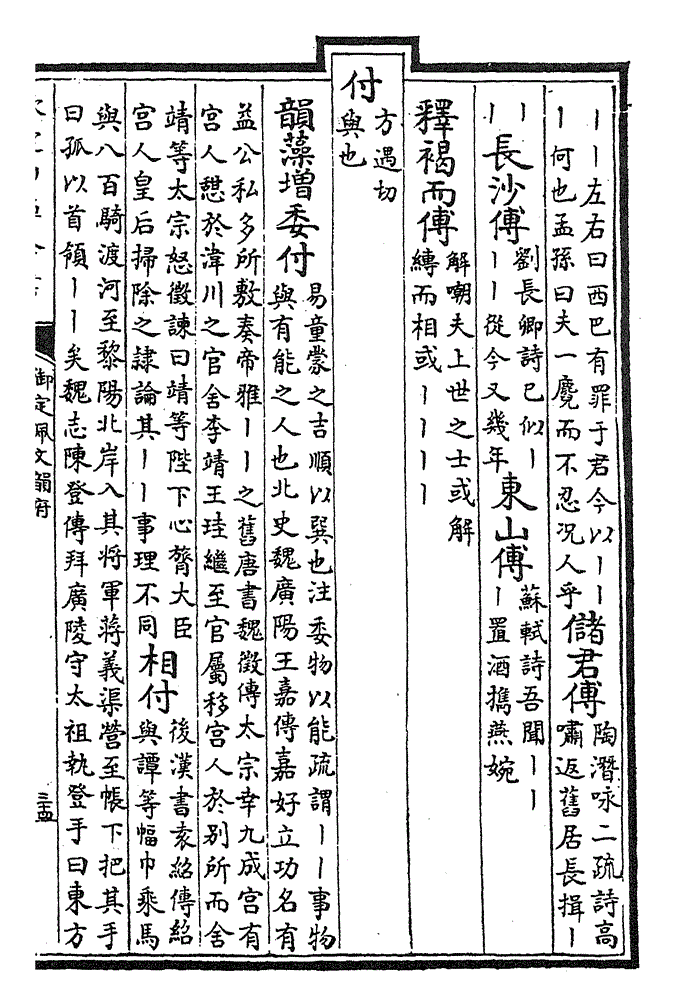 〡〡左右曰西巴有罪于君今以〡〡
〡何也孟孫曰夫一麑而不忍况人乎
儲君傅
陶潛咏二疏詩高
嘯返舊居長揖〡
〡
〡
長沙傅
劉長卿詩已似〡
〡〡從今又幾年
東山傅
蘇軾詩吾聞〡〡
〡置酒擕燕婉
釋褐而傅
解嘲夫上世之士或解
縳而相或〡〡〡〡
付
方遇切
與也
韻藻增委付
易童蒙之吉順以巽也注委物以能疏謂〡〡事物
與有能之人也北史魏廣陽王嘉傳嘉好立功名有
益公私多所敷奏帝雅〡〡之舊唐書魏徵傳太宗幸九成宫有
宫人憇於湋川之官舍李靖王珪繼至官屬移宫人於别所而舍
靖等太宗怒徵諫曰靖等陛下心膂大臣
宫人皇后掃除之隷論其〡〡事理不同
相付
後漢書袁紹傳紹
與譚等幅巾乘馬
與八百騎渡河至黎陽北岸入其將軍蔣義渠營至帳下把其手
曰孤以首領〡〡矣魏志陳登傳拜廣陵守太祖執登手曰東方
御定佩文韻府